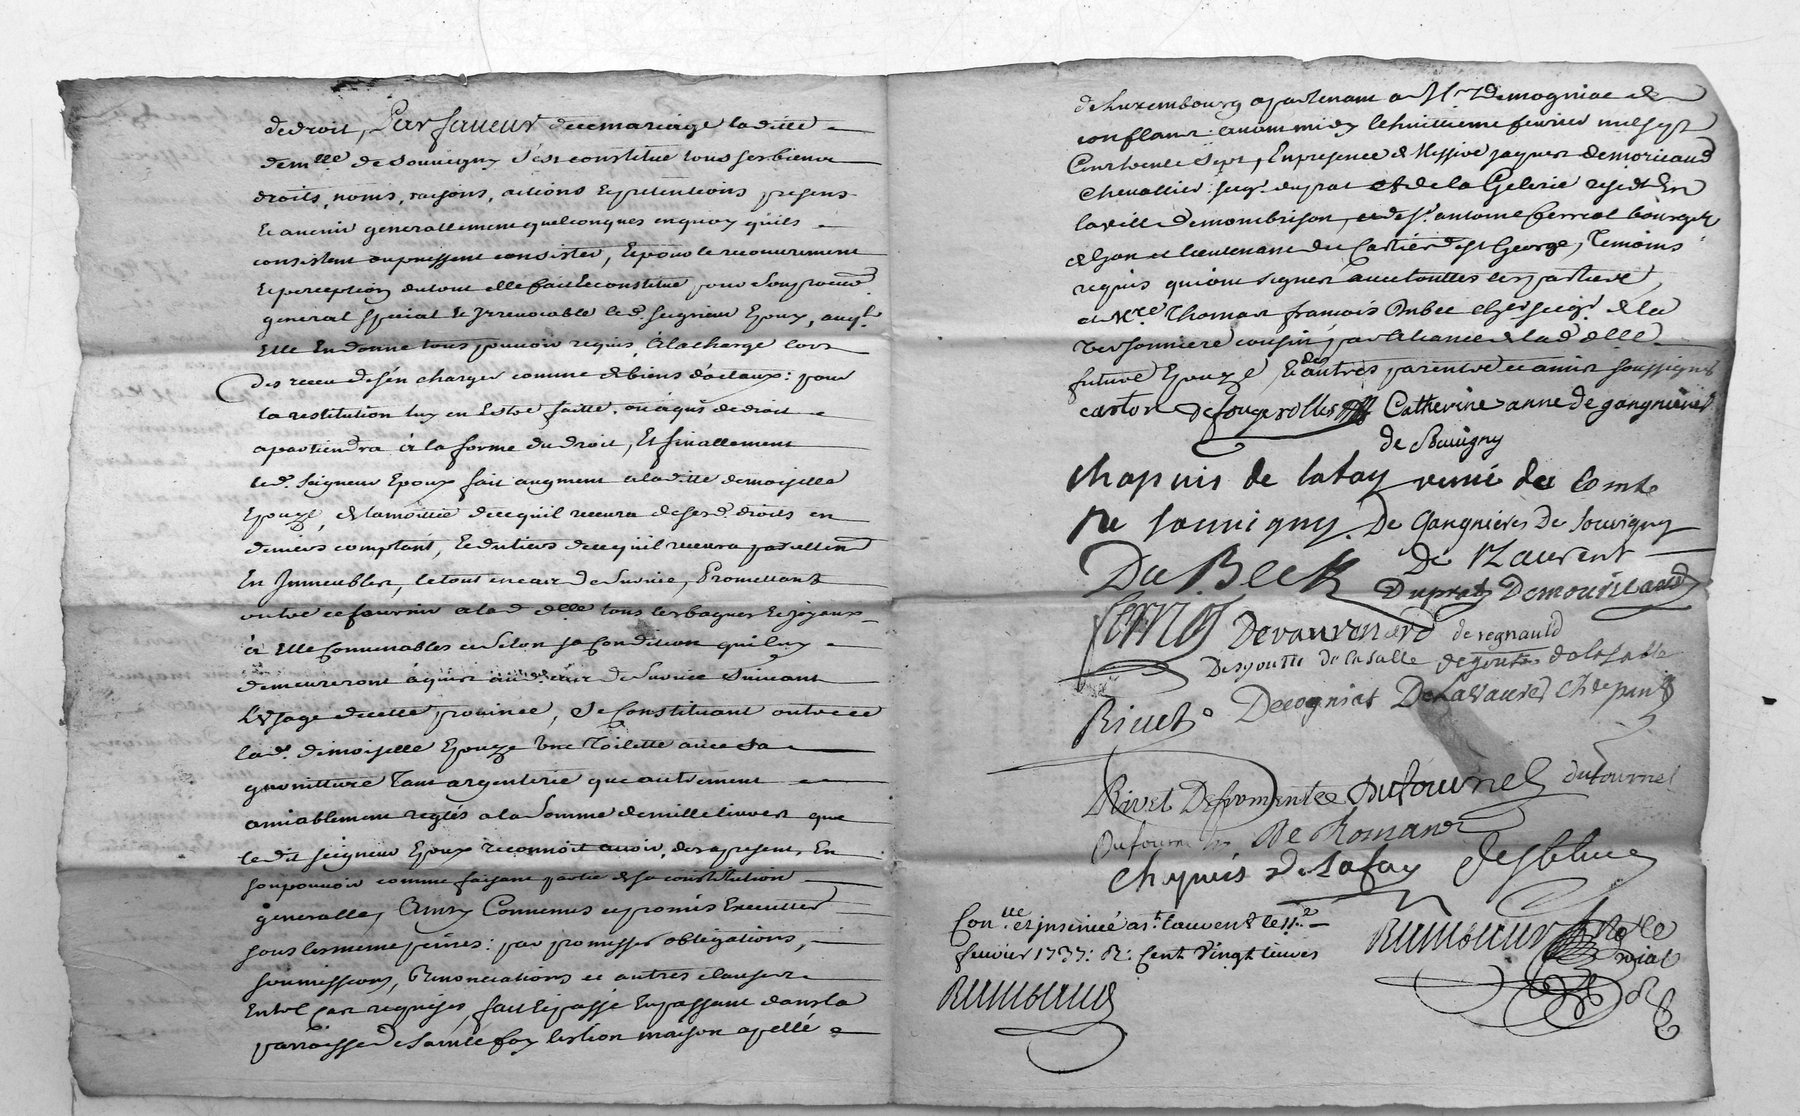 de droit, Par faveur de ce mariage la ditte
dem.lle de Souvigny s'est constitué tous ses biens
droits, noms, raisons, actions et pretentions presens
et avenir generallement quelconques en quoy qu'ils
consistent ou puissent consister, et pour le recouvrement
et perception du tout elle fait et constitue pour son procur.
general special et irrevocable led. seigneur Epoux, auql.
Elle en donne tous pouvoir requis, à la charge lors
des receu de s'en charger comme de biens dotaux: pour
la restitution luy en estre faitte, ou à qui de droit
apartiendra à la forme du droit, Et finallement
led. seigneur Epoux fait augment a la ditte demoiselle
Epouze, de la moitié de ce qu'il recevra de sesd. droits en
deniers comptant, et du tiers de ce qu'il recevra
En Immeubles, le tout en cas de Survie, Promettant
outre ce fournir a lad. d.elle tous les bagues et joyaux
à Elle Convenables et selon sa Condition qui luy
demeureront aquis aud. cas de Survie Suivant
L'usage de cette province, Se Constituant outre ce
lad. demoiselle Epouze Une Toilette avec sa
garniture tant argenterie que autrement
amiablement reglés a la somme de mille livres que
ledit seigneur Epoux reconnoit avoir, des a present, En
son pouvoir comme faisant partie de sa constitution
generalle, Ainsy Convenus et promis Executter
sous les meme peines: par promisses obligations,
soumissions, Renonciations et autres clauses
En tel cas requises, fait et passé En passant dans la
parroisse de Sainte foy les Lion maison apellé
de Luxembourg apartenant a M.r Demogniac de
conflans avant midy le huittieme fevrier mil sept
Cent trente Sept, En presence de Messire jaques demoricaud
Chevallier seig.r duprat et de la Gelerie resid.t En
la ville de mombrison, et de s.r antoine ferriol bourgeois
de Lyon et lieutenant du Cartier de st George, Temoins
requis qui ont signés avec touttes les parties,
et M.re Thomas françois Dubec
cousin par aliance de lad. d.elle
future Epouze, Et des autres parents et amis soussignés
caston de fougerolles Catherine anne de gangnieres
de Souvigny
chapuis de lafay veuve du Comte
de souvigny. De Gangnieres De Souvigny
de st Laurent
Du Beck Duprat Demouricaud
ferriol Devauvenard de regnauld
Desgoutte de lasalle degoutes dela salle
Rivet Decogniat DeLavaure Chapuis
Rivet Deffromentee Dufournel dufournel
Dufournel De Romans
Chapuis de Lafay
Con.lle et insinué a s.t Laurent le 11.e
fevrier 1737: R: Cent vingt livres